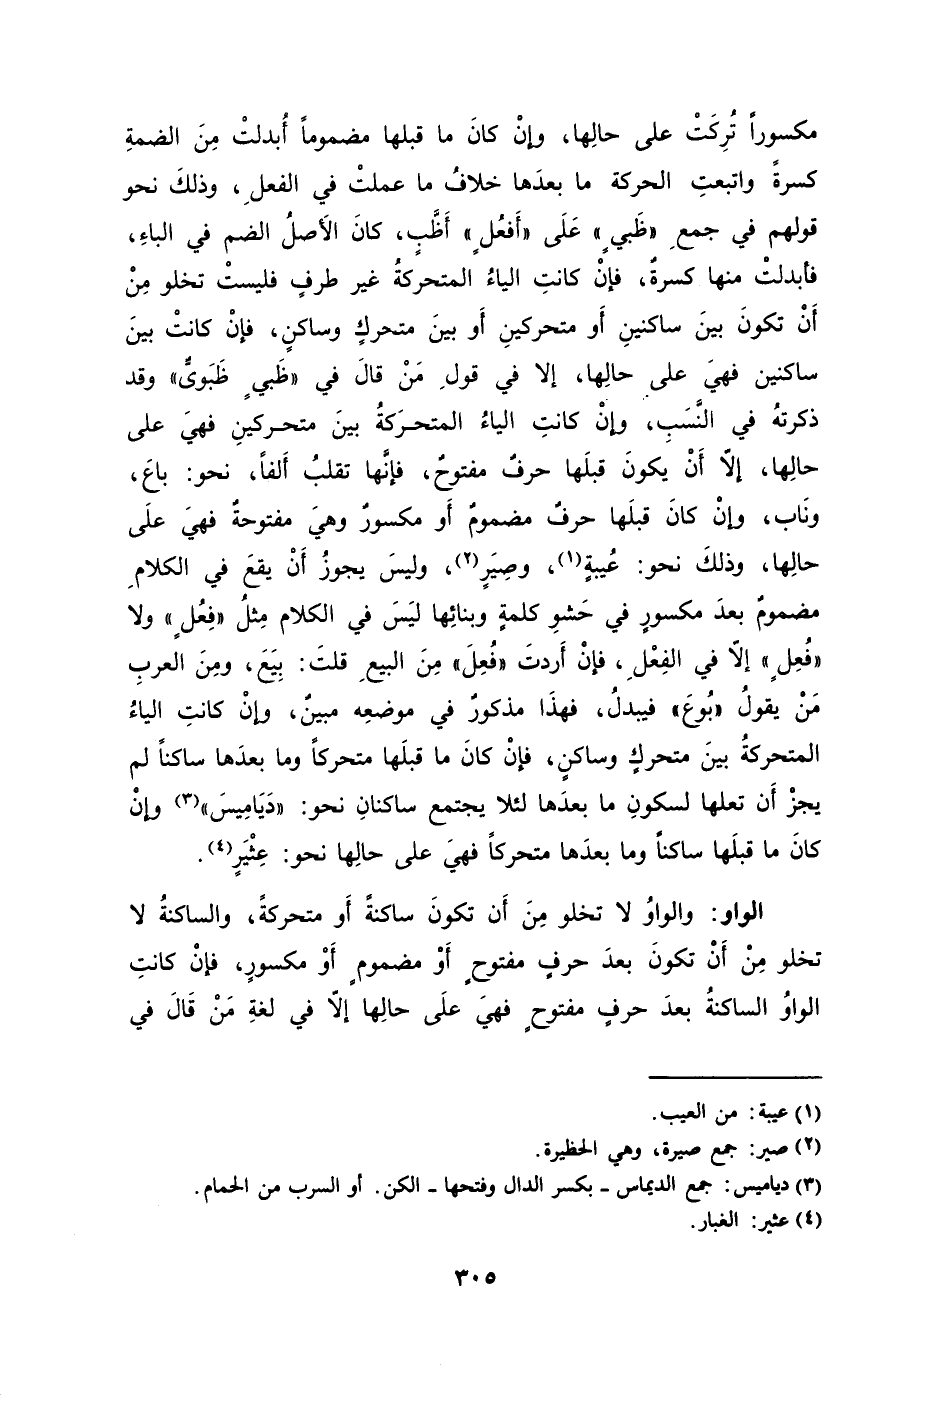 مكسوراً تُرِكَتْ على حالِها، وإنْ كانَ ما قبلها مضموماً أُبدلتْ مِنَ الضمةِ
كسرةً واتبعتِ الحركة ما بعدَها خلافُ ما عملتْ في الفعلِ، وذلكَ نحو
قولهم في جمعِ «ظَبيٍ» عَلَى «أَفعُلٍ» أَظَّبٍ، كانَ الأَصلُ الضم في الباءِ،
فأبدلتْ منها كسرةٌ، فإنْ كانتِ الياءُ المتحركةُ غير طرفٍ فليستْ تخلو مِنْ
أَنْ تكونَ بينَ ساكنينِ أَو متحركينِ أَو بينَ متحركٍ وساكنٍ، فإنْ كانتْ بينَ
ساكنين فهيَ على حالِها، إلا في قولِ مَنْ قالَ في «ظَبيٍ ظَبَويٌّ» وقد
ذكرتهُ في النَّسَبِ، وإنْ كانتِ الياءُ المتحرَكةُ بينَ متحركينِ فهيَ على
حالِها، إلّا أَنْ يكونَ قبلَها حرفٌ مفتوحٌ، فإنَّها تقلبُ أَلفاً، نحو: باعَ،
ونَاب، وإنْ كانَ قبلَها حرفٌ مضمومٌ أَو مكسورٌ وهيَ مفتوحةٌ فهيَ علَى
حالِها، وذلكَ نحو: عُيبةٍ(١)، وصِيَرٍ(٢)، وليس يجوزُ أَنْ يقعَ في الكلامِ
مضمومٌ بعدَ مكسورٍ في حَشوِ كلمةٍ وبنائِها ليَسَ في الكلام مِثلُ «فِعُلٍ» ولا
«فُعِلٍ» إلّا في الفِعْلِ، فإنْ أَردتَ «فُعِلَ» مِنَ البيعِ قلتَ: بِيَعَ، ومِنَ العربِ
مَنْ يقولُ «بُوعَ» فيبدلُ، فهذَا مذكورٌ في موضعِه مبينٌ، وإنْ كانتِ الياءُ
المتحركةُ بينَ متحركٍ وساكنٍ، فإنْ كانَ ما قبلَها متحركاً وما بعدَها ساكناً لم
يجزْ أَن تعلها لسكونِ ما بعدَها لئلا يجتمع ساكنانِ نحو: «دَيَامِيسَ»(٣) وإنْ
كانَ ما قبلَها ساكناً وما بعدَها متحركاً فهيَ على حالِها نحو: عِثْيَرٍ(٤).
الواو: والواوُ لا تخلو مِنَ أَن تكونَ ساكنةً أَو متحركةً، والساكنةُ لا
تخلو مِنْ أَنْ تكونَ بعدَ حرفٍ مفتوحٍ أَوْ مضمومٍ أَوْ مكسورٍ، فإنْ كانتِ
الواوُ الساكنةُ بعدَ حرفٍ مفتوحٍ فهيَ علَى حالِها إلّا في لغةِ مَنْ قَالَ في
(١) عيبة: من العيب.
(٢) صير: جمع صيرة، وهي الحظيرة.
(٣) دياميس: جمع الديماس ـ بكسر الدال وفتحها ـ الكن. أو السرب من الحمام.
(٤) عثير: الغبار.
٣٠٥